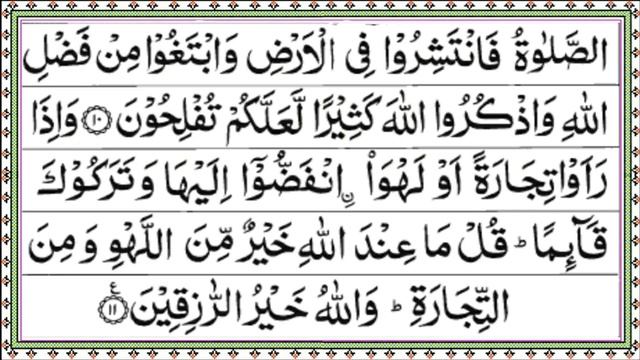 الصَّلٰوةُ فَانْتَشِرُوْا فِی الْاَرْضِ وَابْتَغُوْا مِنْ فَضْلِ
اللّٰهِ وَاذْكُرُوا اللّٰهَ كَثِیْرًا لَّعَلَّكُمْ تُفْلِحُوْنَ ۝۱۰ وَاِذَا
رَاَوْا تِجَارَةً اَوْ لَهْوَا ۨانْفَضُّوْۤا اِلَیْهَا وَتَرَكُوْكَ
قَآىِٕمًا ؕ قُلْ مَا عِنْدَ اللّٰهِ خَیْرٌ مِّنَ اللَّهْوِ وَمِنَ
التِّجَارَةِ ؕ وَاللّٰهُ خَیْرُ الرّٰزِقِیْنَ ۝۱۱ ع